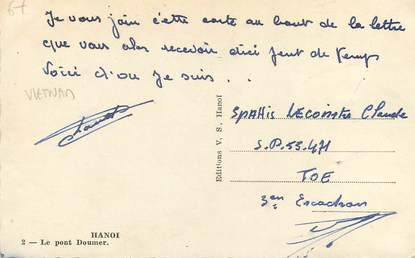 67
Je vous join cette carte au bout de la lettre
que vous aler recevoir dici peut de temps
Voici d'ou je suis . . .
VIETNAM
Spahis LECOMTRE Claude
S.P. 53.471
TOE
3en Escadron
Editions V. S. Hanoi
HANOI
2 — Le pont Doumer.